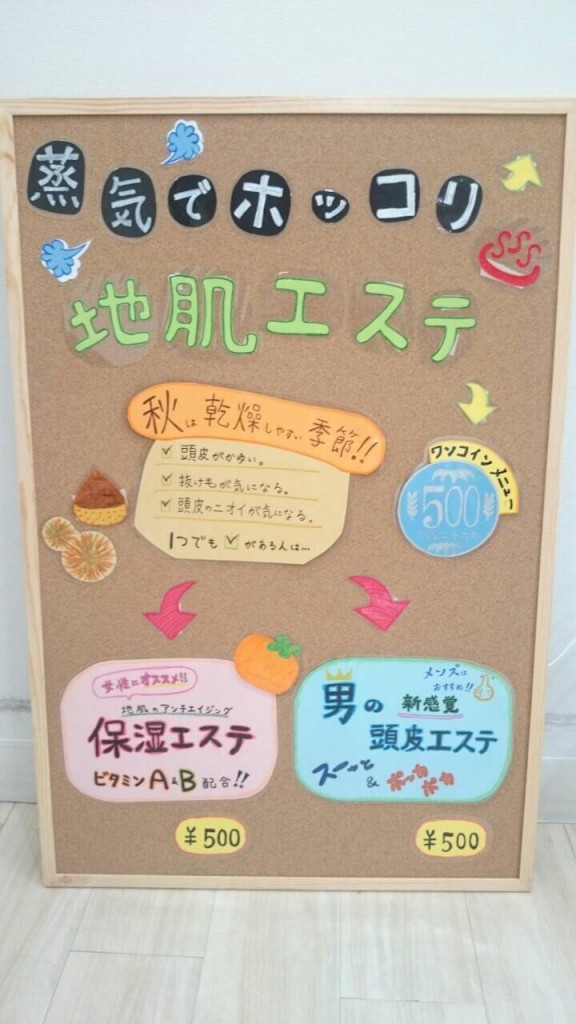 蒸気でホッコリ
地肌エステ
秋は乾燥しやすい季節!!
頭皮がかゆい。
抜け毛が気になる。
頭皮のニオイが気になる。
1つでも✓がある人は…
ワンコインメニュー
500
女性にオススメ!!
地肌のアンチエイジング
保湿エステ
ビタミンA&B配合!!
¥500
メンズに
おすすめ!!
男の
新感覚
頭皮エステ
スーッと
&ポッカポカ
¥500